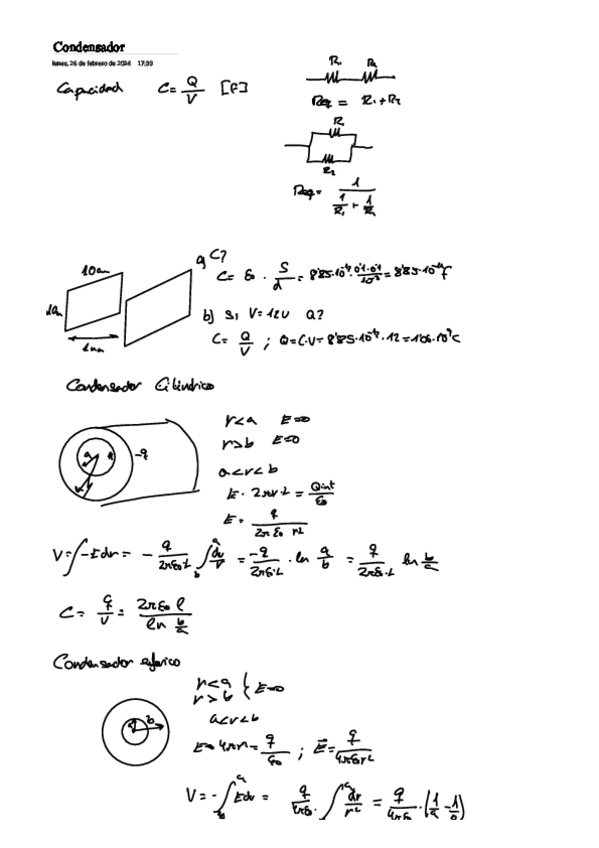 Condensador
lunes, 26 de febrero de 2024 17:39
Capacidad C = Q/V [F]
R₁ R₂
Req = R₁ + R₂
R₁
R₂
Req = 1 / (1/R₁ + 1/R₂)
10cm
1mm
a) C?
C = ε₀ · S/d = 8'85·10⁻¹² · 0'1·0'1/10⁻³ = 8'85·10⁻¹¹ F
b) Si V = 12V Q?
C = Q/V ; Q = C·V = 8'85·10⁻¹¹ · 12 = 1'06·10⁻⁹ C
Condensador Cilíndrico
a -q
b
r<a E=0
r>b E=0
a<r<b
E · 2πrL = Qint/ε₀
E = q / 2πε₀ rL
V = ∫ -Edr = - q/2πε₀·L ∫ dr/r = -q/2πε₀·L · ln a/b = q/2πε₀·L ln b/a
C = q/V = 2πε₀ l / ln b/a
Condensador esférico
a b
r<a
r>b } E=0
a<r<b
E · 4πr² = q/ε₀ ; E = q/4πε₀r²
V = - ∫ Edr = q/4πε₀ · ∫ dr/r² = q/4πε₀ · (1/a - 1/b)